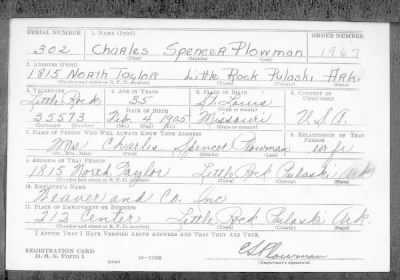 SERIAL NUMBER 1. NAME (Print) ORDER NUMBER
302 Charles Spencer Plowman 1967
(First) (Middle) (Last)
2. ADDRESS (Print)
1815 North Taylor Little Rock Pulaski Ark.
(Number and street or R. F. D. number) (Town) (County) (State)
3. TELEPHONE 4. AGE IN YEARS 5. PLACE OF BIRTH 6. COUNTRY OF CITIZENSHIP
Little Rock 35 St. Louis
DATE OF BIRTH (Town or county)
35573 Feb. 4 1905 Missouri U.S.A.
(Mo.) (Day) (Yr.) (State or country)
7. NAME OF PERSON WHO WILL ALWAYS KNOW YOUR ADDRESS 8. RELATIONSHIP OF THAT PERSON
Mrs. Charles Spencer Plowman wife
(Mr., Mrs., Miss) (First) (Middle) (Last)
9. ADDRESS OF THAT PERSON
1815 North Taylor Little Rock Pulaski Ark
(Number and street or R. F. D. number) (Town) (County) (State)
10. EMPLOYER'S NAME
Beaver and Co. Inc
11. PLACE OF EMPLOYMENT OR BUSINESS
212 Center Little Rock Pulaski Ark.
(Number and street or R. F. D. number) (Town) (County) (State)
I AFFIRM THAT I HAVE VERIFIED ABOVE ANSWERS AND THAT THEY ARE TRUE.
REGISTRATION CARD
D. S. S. Form 1
CS Plowman
(Registrant's signature)